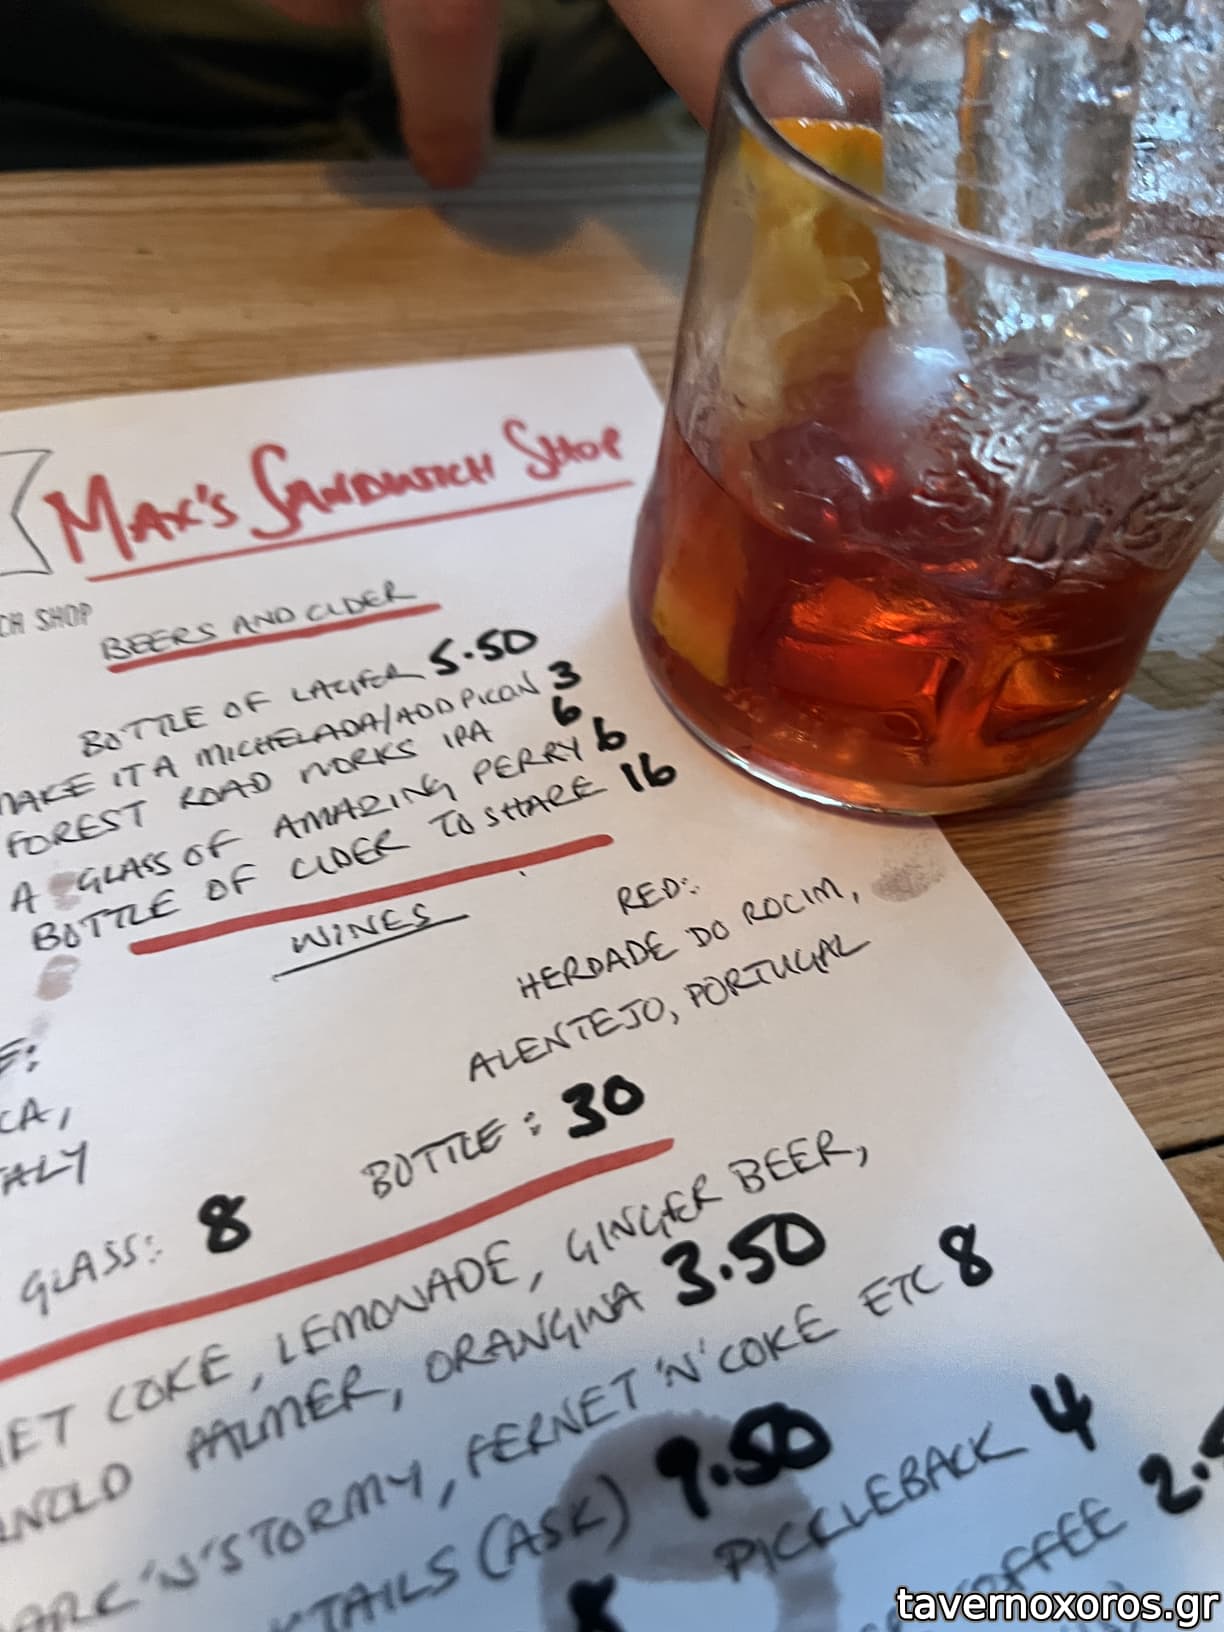 MAX'S SANDWICH SHOP
CH SHOP
BEERS AND CIDER
BOTTLE OF LAGER 5.50
MAKE IT A MICHELADA/ADD PICON 3
FOREST ROAD WORKS IPA 6
A GLASS OF AMAZING PERRY 6
BOTTLE OF CIDER TO SHARE 16
WINES
RED:
HERDADE DO ROCIM,
ALENTEJO, PORTUGAL
BOTTLE: 30
E:
CA,
TALY
GLASS: 8
IET COKE, LEMONADE, GINGER BEER,
RNOLD PALMER, ORANGINA 3.50
ARK 'N' STORMY, FERNET 'N' COKE ETC 8
KTAILS (ASK) 9.50
PICKLEBACK 4
COFFEE 2.5
tavernoxoros.gr